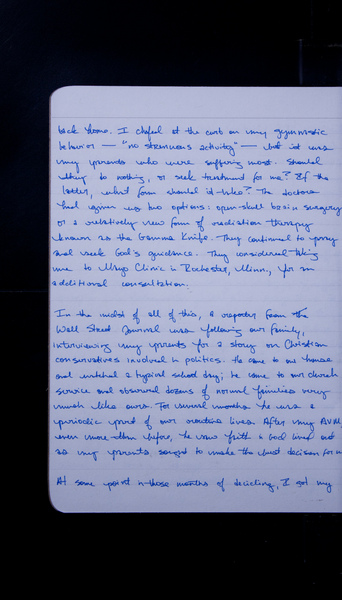 back home. I chafed at the curb on my gymnastic
behavior — "no strenuous activity" — but it was
my parents who were suffering most. Should
they do nothing, or seek treatment for me? If the
latter, what form should it take? The doctors
had given us two options: open-skull brain surgery
or a relatively new form of radiation therapy
known as the Gamma Knife. They continued to pray
and seek God's guidance. They considered taking
me to Mayo Clinic in Rochester, Minn., for an
additional consultation.
In the midst of all of this, a reporter from the
Wall Street Journal was following our family,
interviewing my parents for a story on Christian
conservatives involved in politics. He came to our house
and watched a typical school day; he came to our church
service and observed dozens of normal families very
much like ours. For several months he was a
periodic part of our routine lives. After my AVM
even more than before, he saw faith in God lived out
as my parents sought to make the best decision for m
At some point in those months of deciding, I got my